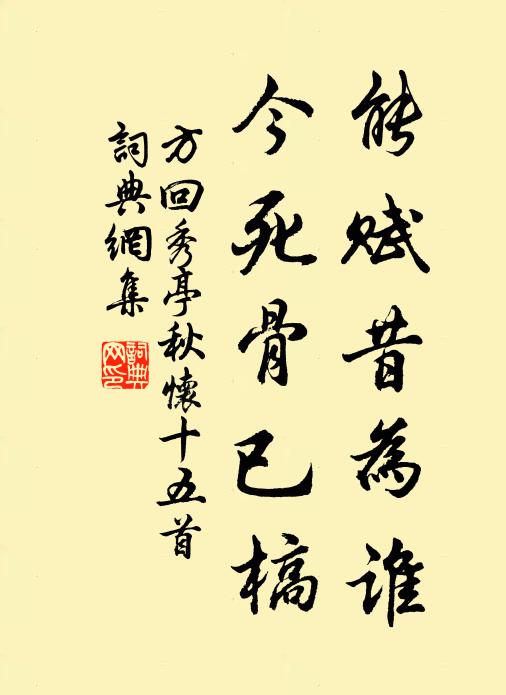 能賦昔為誰
今死骨已槁
方回秀亭秋懷十五首
詞典網集
詞典網印